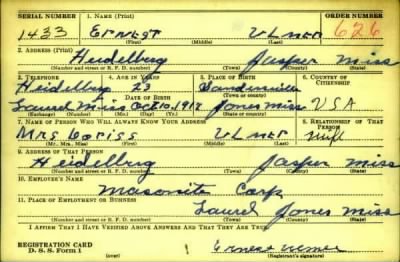 SERIAL NUMBER 1. NAME (Print) ORDER NUMBER
1433 ERNEST ULMER 626
(First) (Middle) (Last)
2. ADDRESS (Print)
Heidelberg Jasper Miss
(Number and street or R. F. D. number) (Town) (County) (State)
3. TELEPHONE 4. AGE IN YEARS 5. PLACE OF BIRTH 6. COUNTRY OF
CITIZENSHIP
Heidelberg 23 Sandersville
DATE OF BIRTH (Town or county)
Laurel Miss Oct 10. 1917 Jones Miss USA
(Exchange) (Number) (Mo.) (Day) (Yr.) (State or country)
7. NAME OF PERSON WHO WILL ALWAYS KNOW YOUR ADDRESS 8. RELATIONSHIP OF THAT
PERSON
MRS ULMER Wife
(Mr., Mrs., Miss) (First) (Middle) (Last)
9. ADDRESS OF THAT PERSON
Heidelberg Jasper Miss
(Number and street or R. F. D. number) (Town) (County) (State)
10. EMPLOYER'S NAME
Masonite Corp
11. PLACE OF EMPLOYMENT OR BUSINESS
Laurel Jones Miss
(Number and street or R. F. D. number) (Town) (County) (State)
I AFFIRM THAT I HAVE VERIFIED ABOVE ANSWERS AND THAT THEY ARE TRUE.
REGISTRATION CARD
D. S. S. Form 1
Ernest Ulmer
(Registrant's signature)